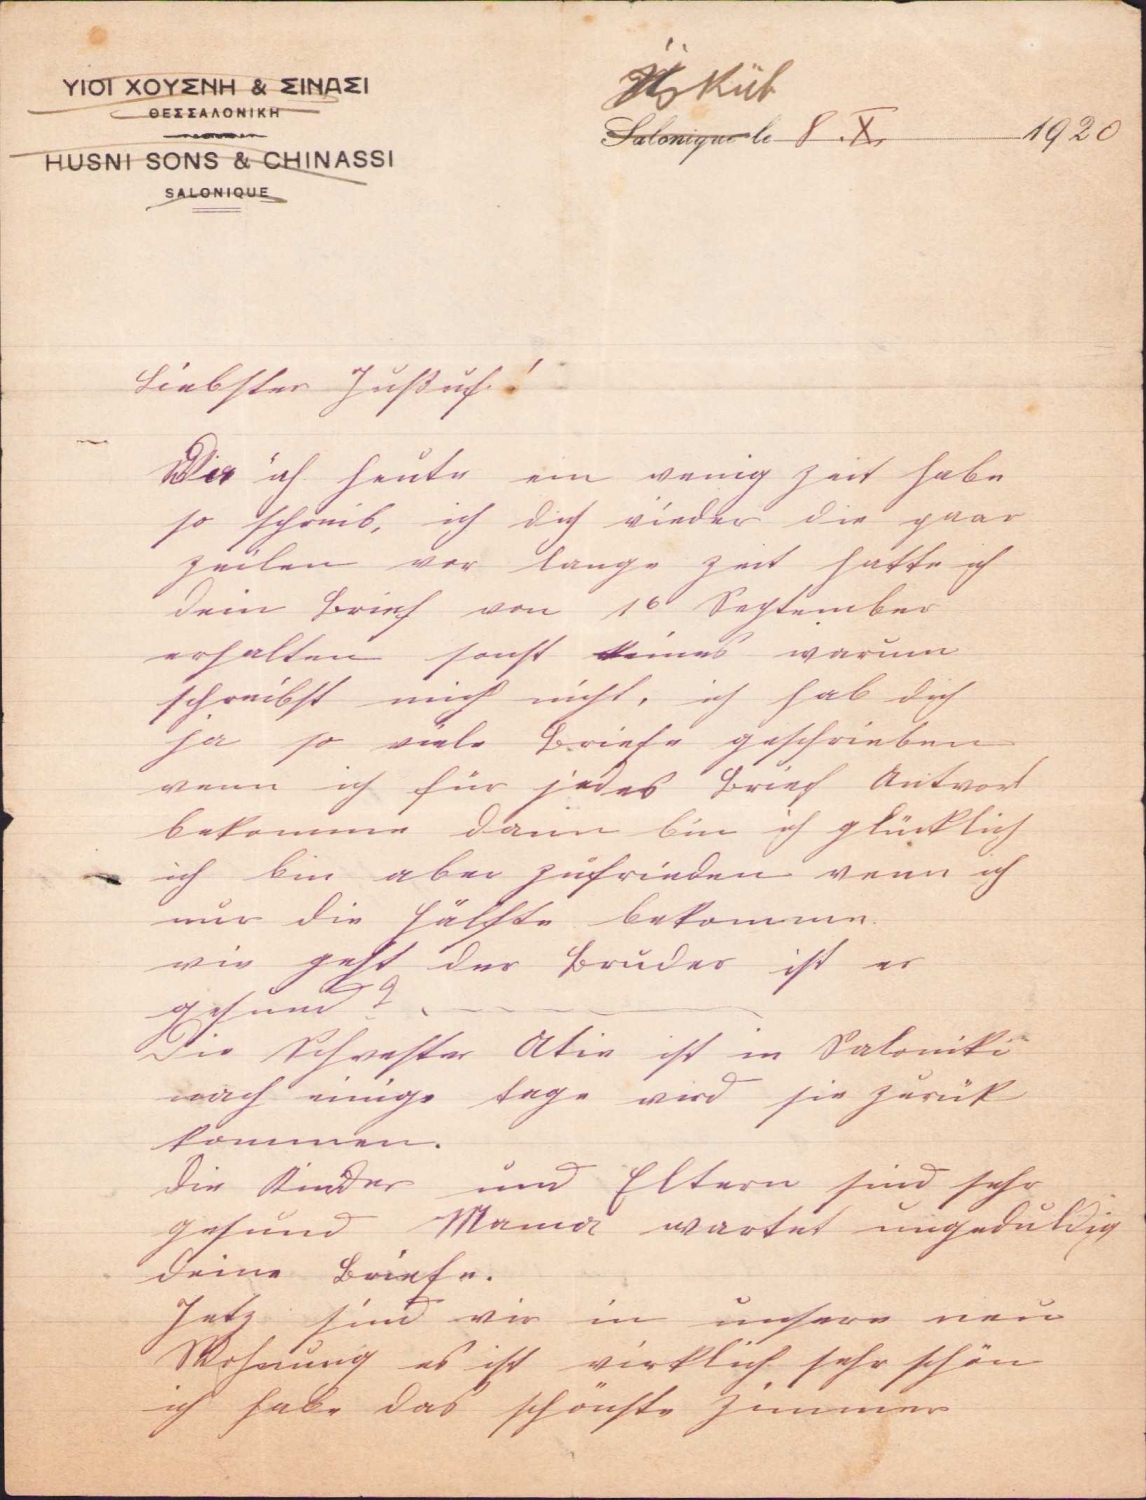 ΥΙΟΙ ΧΟΥΣΝΗ & ΣΙΝΑΣΙ
ΘΕΣΣΑΛΟΝΙΚΗ
HUSNI SONS & CHINASSI
SALONIQUE
Üsküb
Salonique le 8.X. 1920
Liebster Jußuf!
Da ich heute ein wenig zeit habe
so schreib, ich dich wieder die paar
zeilen vor lange zeit hatte ich
dein Brief von 16 September
erhalten sonst keines warum
schreibst mich nicht, ich hab dich
ja so viele Briefe geschrieben
wenn ich für jedes Brief Antwort
bekomme dann bin ich glücklich
ich bin aber zufrieden wenn ich
nur die Hälfte bekomme.
wie geht der Bruder ist er
gesund?
Die Schwester Atie ist in Saloniki
nach einige tage wird sie zurük
kommen.
die Kinder und Eltern sind sehr
gesund Mama wartet ungeduldig
deine Briefe.
Jetz sind wir in unsere neu
Wohnung es ist wirklich sehr schön
ich habe das schönste Zimmer